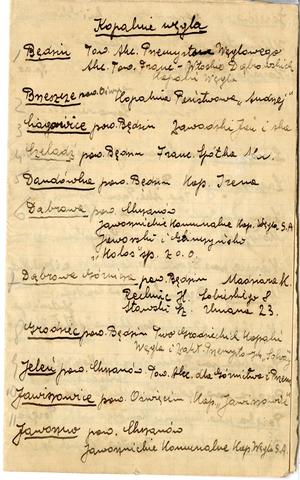 Kopalnie węgla
1 Będzin Tow. Akc. Przemysłowe Węglowego
Akc. Tow. Franc.-Włoskie Dąbrowskich
Kopalń Węgla
2 Brzeszcze pow. Kopalnia Państwowa "Andrzej"
3 pow. Będzin Zawadzki i ska
4 Czeladź pow. Będzin Franc. Spółka Akc.
5 Dańdówka pow. Będzin Kop. Irena
6 Dąbrowa pow. Chrzanów
Jaworznickie Komunalne Kop. Węgla S.A
Jaworski i
"Kolos" sp. z o. o.
7 Dąbrowa Górnicza pow. Będzin K.
H. Sobieskiego 8
23.
Grodziec pow. Będzin Two Grodzieckich Kopalń
Węgla i Zakł. Przemysłowych,
Jeleń pow. Chrzanów Tow. Akc. dla Górnictwa i Przem
Jawiszowice pow. Oświęcim Kop. "Jawiszowice"
Jaworzno pow. Chrzanów
Jaworznickie Komunalne Kop Węgla S.A.